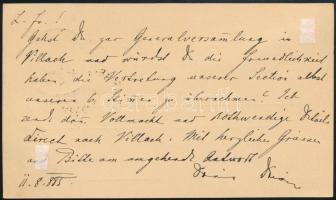 L. Fr. !
Gehst Du zur Generalversammlung in
Villach und würdest Du die Freundlichkeit
haben, die Vertretung unserer Section sammt
unseren 6 Stimen übernehmen? Ich
sende dann Vollmacht und nothwendige Details
direct nach Villach. Mit herzlichen Grüssen
und Bitte um umgehende Antwort
11. 8. 885